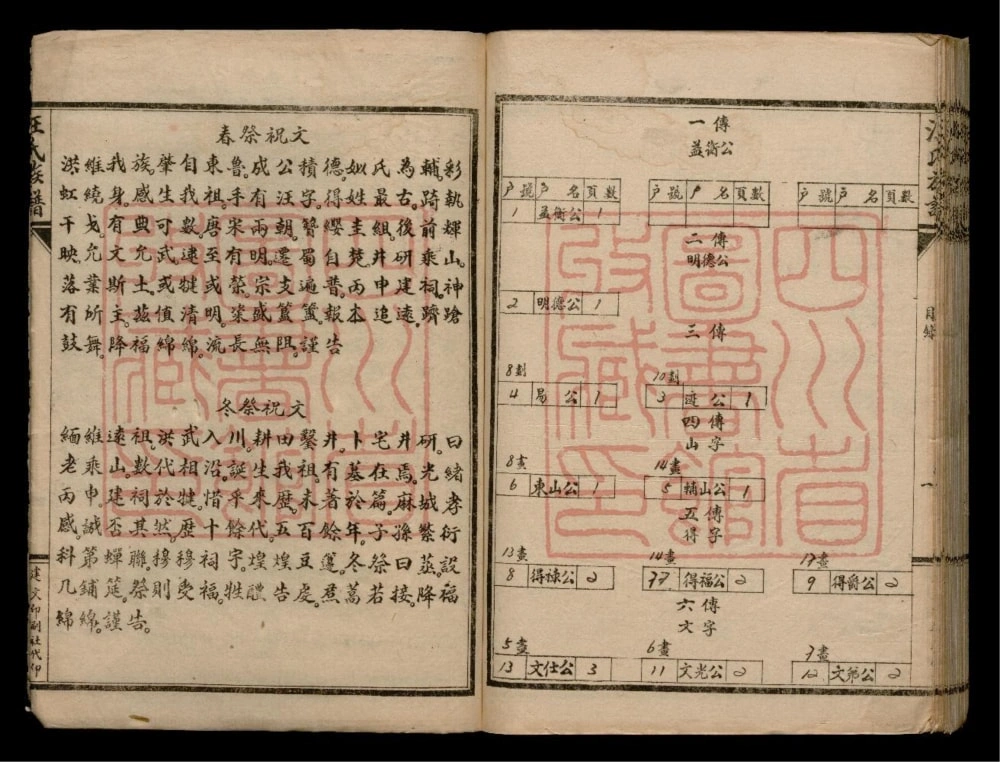 汪氏族譜
建文印刷社代印
春祭祝文
洪維我族。肇自東魯。成公積德。姒氏為輔。彩
虹繞身。感生我祖。手有汪字。得姓最古。踦執
干戈。有典可數。唐宋兩朝。簪纓圭組。後前輝
映。允文允武。逮至有明。遷蜀自楚。井研乘山。
落葉斯土。或犍或榮。宗支遍普。丙申建祠。神
有所主。茲值清明。渠盛簠簋。報本追遠。躋蹌
鼓舞。降福綿綿。流長無阻。謹告
冬祭祝文
緬維遠祖。洪武入川。耕田鑿井。卜宅井研。曰
老乘山。數代相沿。誕生我祖。有墓在焉。光緒
丙申。建祠於犍。惜乎來歷。未著於篇。麻城孝
感。誠否其然。歷十餘代。五百餘年。子孫繁衍
科第蟬聯。穆穆祠字。煌煌豆籩。冬祭曰蒸。設
几鋪筵。祭則受福。牲醴告處。焄蒿若接。降福
綿綿。謹告。
四川省圖書館收藏印
一傳
益衛公
戶號 戶名 頁數 戶號 戶名 頁數 戶號 戶名 頁數
1 益衛公 1
二傳
明德公
2 明德公 1
三傳
8劃 10劃
4 易公 1 3 遊公 1
四傳
山字
8畫 14畫
6 東山公 1 5 輔山公 1
五傳
得字
13畫 14畫 17畫
8 得祿公 2 77 得福公 2 9 得爵公 2
六傳
文字
5畫 6畫 7畫
13 文仕公 3 11 文光公 2 12 文弟公 2
四川省圖書館收藏印
汪氏族譜
目錄
一